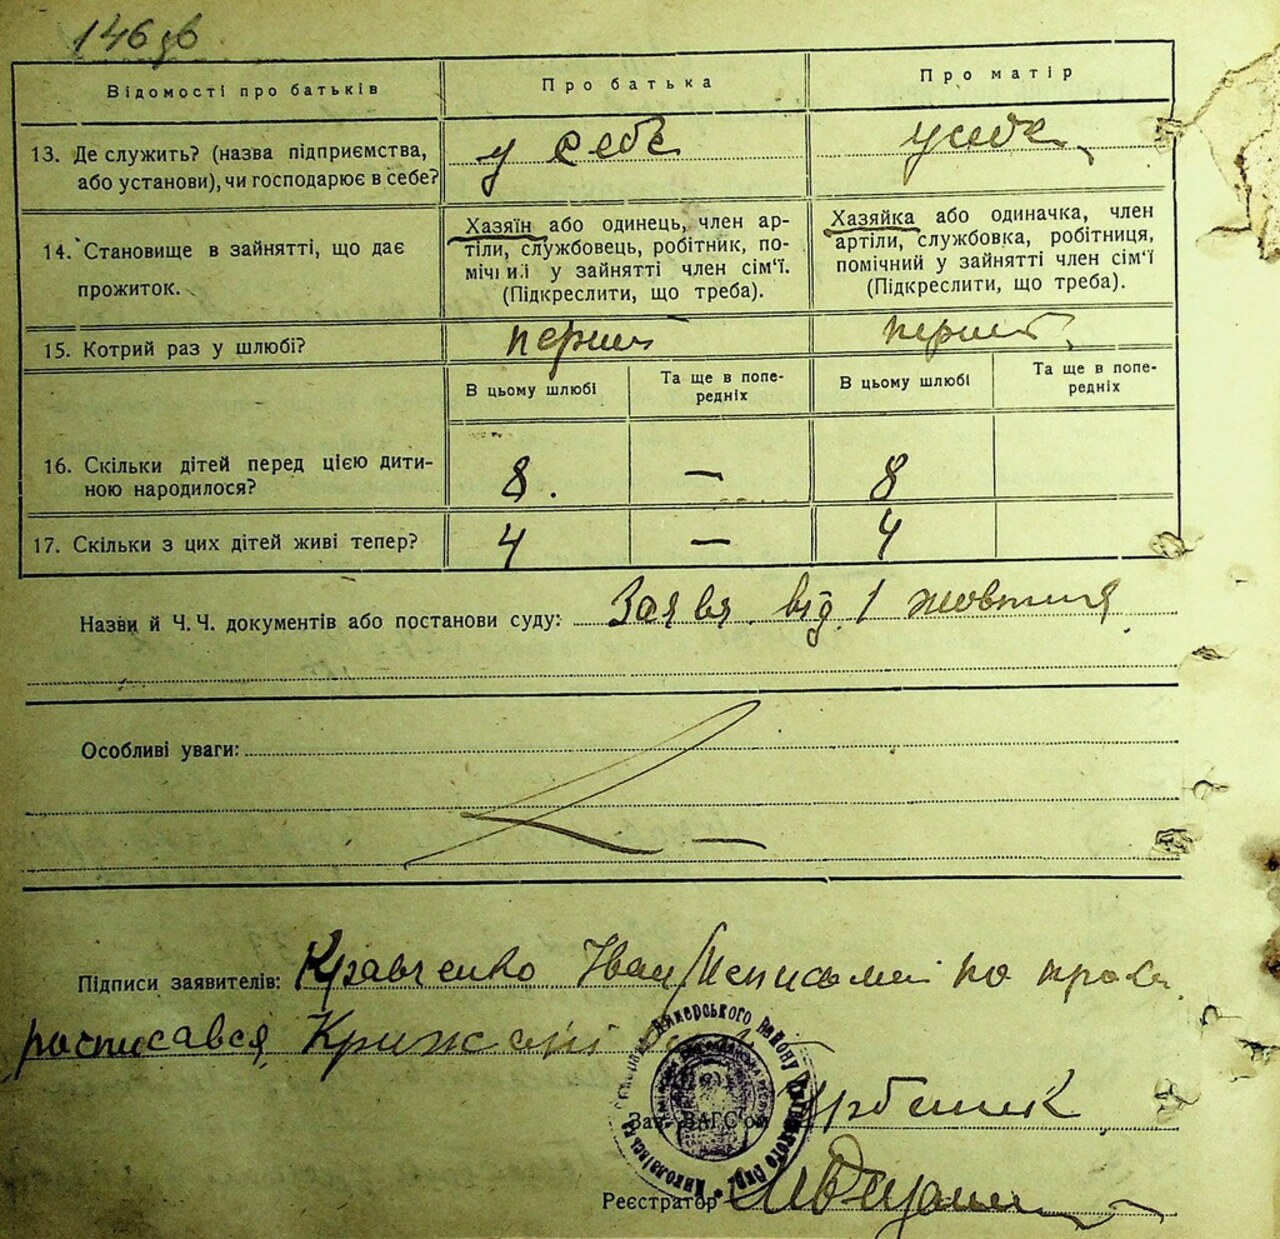 146 зв
Відомості про батьків
Про батька
Про матір
13. Де служить? (назва підприємства,
або установи), чи господарює в себе?
у себе
у себе
14. Становище в зайнятті, що дає
прожиток.
Хазяїн або одинець, член ар-
тіли, службовець, робітник, по-
мічний у зайнятті член сім'ї.
(Підкреслити, що треба).
Хазяйка або одиначка, член
артіли, службовка, робітниця,
помічний у зайнятті член сім'ї
(Підкреслити, що треба).
15. Котрий раз у шлюбі?
перший
перший
В цьому шлюбі
Та ще в попе-
редніх
В цьому шлюбі
Та ще в попе-
редніх
16. Скільки дітей перед цією дити-
ною народилося?
8.
—
8
17. Скільки з цих дітей живі тепер?
4
—
4
Назви й Ч.Ч. документів або постанови суду: Заява від 1 жовтня
Особливі уваги:
Підписи заявителів: Кравченко Іван/Неписьмен по
росписався
Зав. ЗАГС'ом
Реєстратор